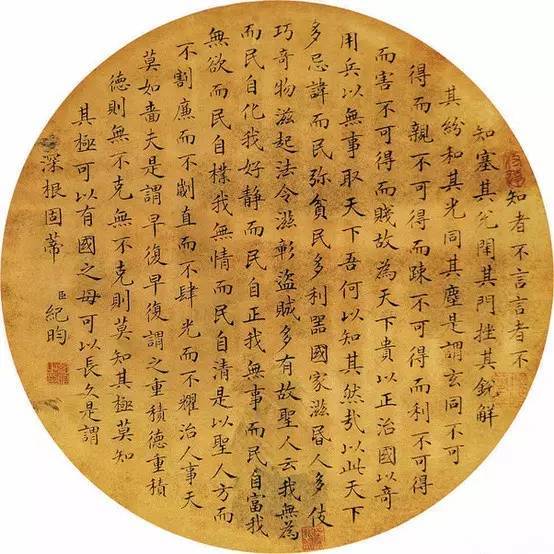 知者不言言者不
知塞其兊閉其門挫其銳解
其紛和其光同其塵是謂玄同不可
得而親不可得而踈不可得而利不可得
而害不可得而賤故為天下貴以正治國以奇
用兵以無事取天下吾何以知其然㢤以此天下
多忌諱而民弥貧民多利器國家滋昏人多伎
巧奇物滋起法令滋彰盜賊多有故聖人云我無為
而民自化我好静而民自正我無事而民自富我
無欲而民自樸我無情而民自清是以聖人方而
不割廉而不劌直而不肆光而不耀治人事天
莫如嗇夫是謂早復早復謂之重積德重積
德則無不克無不克則莫知其極莫知
其極可以有國之母可以長久是謂
深根固蒂
臣紀昀